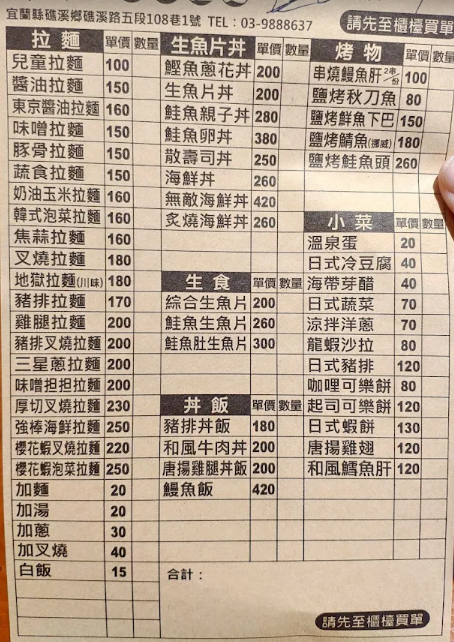 宜蘭縣礁溪鄉礁溪路五段108巷1號 TEL：03-9888637
請先至櫃檯買單
拉麵 單價 數量
兒童拉麵 100
醬油拉麵 150
東京醬油拉麵 160
味噌拉麵 150
豚骨拉麵 150
蔬食拉麵 150
奶油玉米拉麵 160
韓式泡菜拉麵 160
焦蒜拉麵 160
叉燒拉麵 180
地獄拉麵(川味) 180
豬排拉麵 170
雞腿拉麵 200
豬排叉燒拉麵 200
三星蔥拉麵 200
味噌担担拉麵 200
厚切叉燒拉麵 230
強棒海鮮拉麵 250
櫻花蝦叉燒拉麵 220
櫻花蝦泡菜拉麵 250
加麵 20
加湯 20
加蔥 30
加叉燒 40
白飯 15
生魚片丼 單價 數量
鰹魚蔥花丼 200
生魚片丼 200
鮭魚親子丼 280
鮭魚卵丼 380
散壽司丼 250
海鮮丼 260
無敵海鮮丼 420
炙燒海鮮丼 260
生食 單價 數量
綜合生魚片 200
鮭魚生魚片 260
鮭魚肚生魚片 300
丼飯 單價 數量
豬排丼飯 180
和風牛肉丼 200
唐揚雞腿丼飯 200
鰻魚飯 420
烤物 單價 數量
串燒鰻魚肝2串/份 100
鹽烤秋刀魚 80
鹽烤鮮魚下巴 150
鹽烤鯖魚(挪威) 180
鹽烤鮭魚頭 260
小菜 單價 數量
溫泉蛋 20
日式冷豆腐 40
海帶芽醋 40
日式蔬菜 70
涼拌洋蔥 70
龍蝦沙拉 80
日式豬排 120
咖哩可樂餅 80
起司可樂餅 120
日式蝦餅 130
唐揚雞翅 120
和風鱈魚肝 120
合計：
請先至櫃檯買單